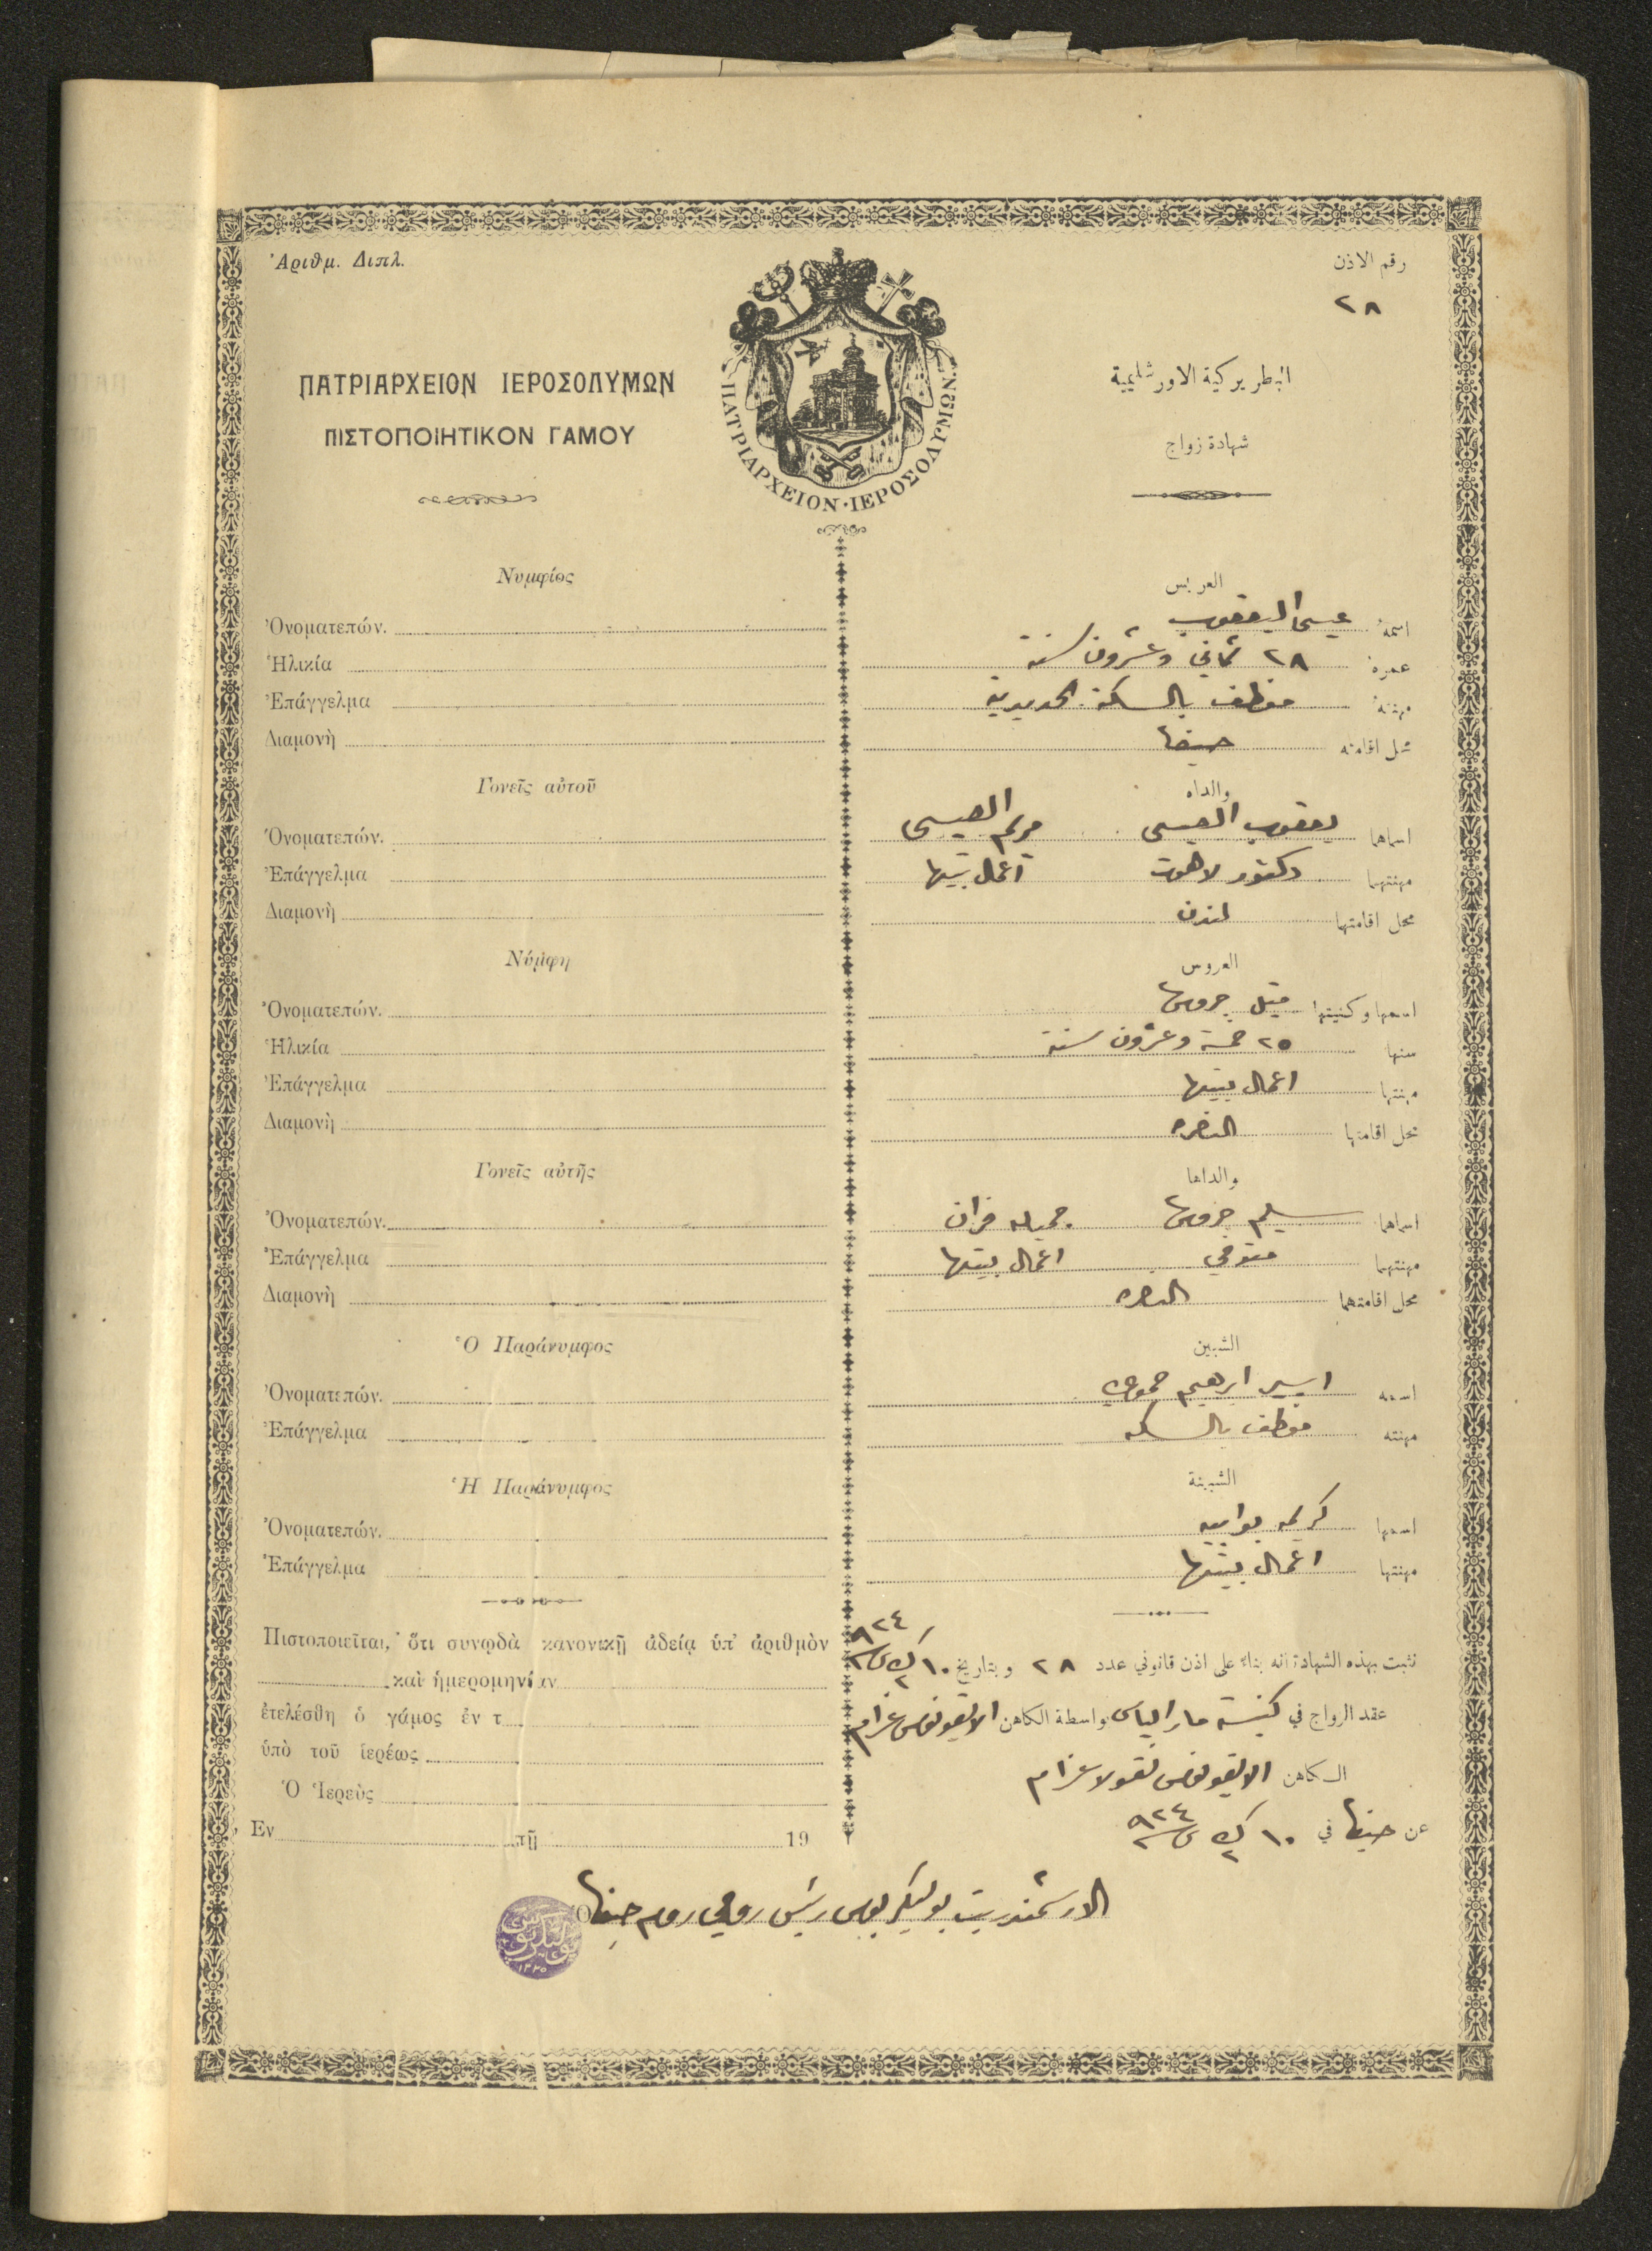 Ἀριθμ. Διπλ.
رقم الاذن
٢٨
ΠΑΤΡΙΑΡΧΕΙΟΝ ΙΕΡΟΣΟΛΥΜΩΝ
ΠΙΣΤΟΠΟΙΗΤΙΚΟΝ ΓΑΜΟΥ
ΠΑΤΡΙΑΡΧΕΙΟΝ·ΙΕΡΟΣΟΛΥΜΩΝ.
البطريركية الاورشليمية
شهادة زواج
Νυμφίος
Ὀνοματεπών.
Ἡλικία
Ἐπάγγελμα
Διαμονὴ
Γονεῖς αὐτοῦ
Ὀνοματεπών.
Ἐπάγγελμα
Διαμονὴ
Νύμφη
Ὀνοματεπών.
Ἡλικία
Ἐπάγγελμα
Διαμονὴ
Γονεῖς αὐτῆς
Ὀνοματεπών.
Ἐπάγγελμα
Διαμονὴ
Ὁ Παράνυμφος
Ὀνοματεπών.
Ἐπάγγελμα
Ἡ Παράνυμφος
Ὀνοματεπών.
Ἐπάγγελμα
Πιστοποιεῖται, ὅτι συνῳδὰ κανονικῇ ἀδείᾳ ὑπ' ἀριθμὸν
καὶ ἡμερομηνίαν
ἐτελέσθη ὁ γάμος ἐν τ
ὑπὸ τοῦ ἱερέως
Ὁ Ἱερεὺς
Ἐν τῇ 19
العريس
اسمهُ عيسى اليعقوب
عمرهُ ٢٨ ثماني وعشرون سنة
مهنتهُ موظف بالسكة الحديدية
محل اقامته حيفا
والداه
اسماهما يعقوب العيسى مريم العيسى
مهنتهما دكتور لاهوت اعمال بيتها
محل اقامتهما لندن
العروس
اسمها وكنيتها
سنها ٢٥ خمسة وعشرون سنة
مهنتها اعمال بيتها
محل اقامتها الناصره
والداها
اسماهما سليم جميله
مهنتهما متوفي اعمال بيتها
محل اقامتهما الناصره
الشبين
اسمه ابرهيم
مهنته موظف بالسكه
الشبينة
اسمها كريمه
مهنتها اعمال بيتها
نثبت بهذه الشهادة انه بناءً على اذن قانوني عدد ٢٨ وبتاريخ ١٠ ك٢ سنة ٩٢٤
عقد الزواج في كنيسة مار الياس بواسطة الكاهن الايقونومس عزام
الكاهن الايقونومس نقولا عزام
عن حيفا في ١٠ ك٢ سنة ٩٢٤
الارشمندريت بوليكربوس رئيس روحي روم حيفا